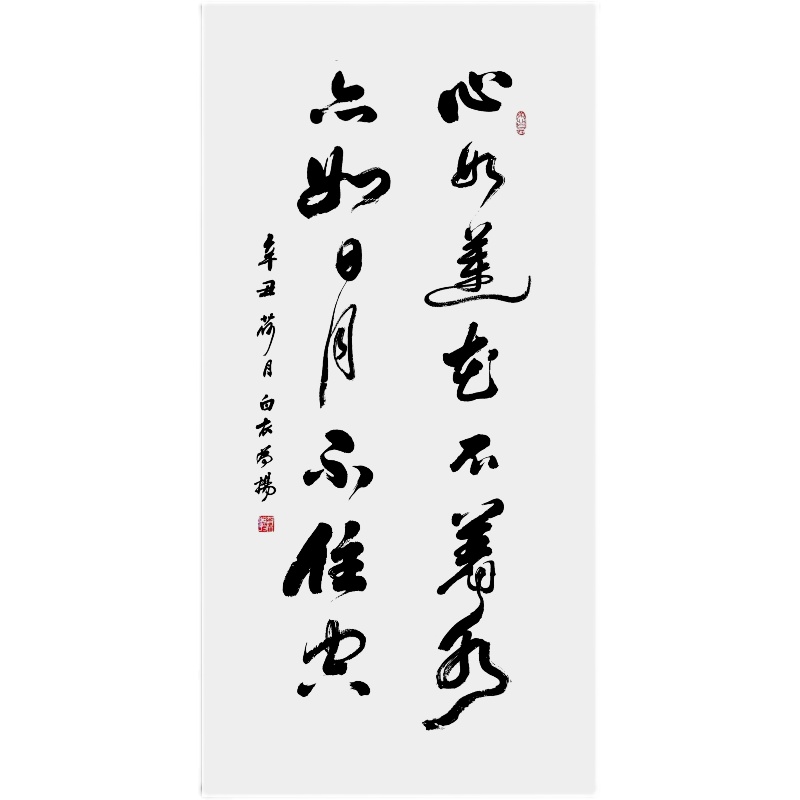 心如莲花不着水
亦如日月不住空
辛丑荷月白衣